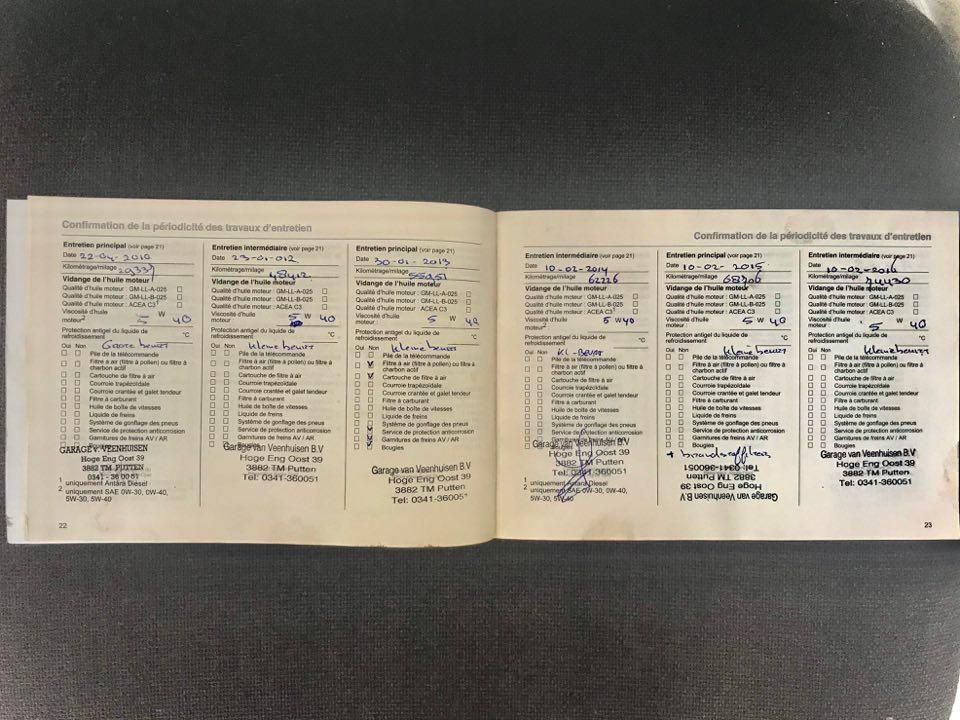 Confirmation de la périodicité des travaux d'entretien
Entretien principal (voir page 21)
Date 22-04-2010
Kilométrage/milage
Vidange de l'huile moteur
Qualité d'huile moteur : GM-LL-A-025
Qualité d'huile moteur : GM-LL-B-025
Qualité d'huile moteur : ACEA C3¹
Viscosité d'huile
moteur² 5 W 40
Protection antigel du liquide de
refroidissement °C
Oui Non Grote beurt
Pile de la télécommande
Filtre à air (filtre à pollen) ou filtre à
charbon actif
Cartouche de filtre à air
Courroie trapézoïdale
Courroie crantée et galet tendeur
Filtre à carburant
Huile de boîte de vitesses
Liquide de freins
Système de gonflage des pneus
Service de protection anticorrosion
Garnitures de freins AV / AR
Bougies
GARAGE v. VEENHUISEN
Hoge Eng Oost 39
3882 TM PUTTEN
0341 - 36 00 51
1 uniquement Antara Diesel
2 uniquement SAE 0W-30, 0W-40,
5W-30, 5W-40
22
Entretien intermédiaire (voir page 21)
Date 23-01-012
Kilométrage/milage 48412
Vidange de l'huile moteur
Qualité d'huile moteur : GM-LL-A-025
Qualité d'huile moteur : GM-LL-B-025
Qualité d'huile moteur : ACEA C3
Viscosité d'huile
moteur 5 W 40
Protection antigel du liquide de
refroidissement °C
Oui Non kleine beurt
Pile de la télécommande
Filtre à air (filtre à pollen) ou filtre à
charbon actif
Cartouche de filtre à air
Courroie trapézoïdale
Courroie crantée et galet tendeur
Filtre à carburant
Huile de boîte de vitesses
Liquide de freins
Système de gonflage des pneus
Service de protection anticorrosion
Garnitures de freins AV / AR
Bougies
Garage van Veenhuisen B.V
Hoge Eng Oost 39
3882 TM Putten
Tel: 0341-360051
Entretien principal (voir page 21)
Date 30-01-2013
Kilométrage/milage
Vidange de l'huile moteur
Qualité d'huile moteur : GM-LL-A-025
Qualité d'huile moteur : GM-LL-B-025
Qualité d'huile moteur : ACEA C3
Viscosité d'huile
moteur : 5 W 40
Protection antigel du liquide de
refroidissement °C
Oui Non kleine beurt
Pile de la télécommande
Filtre à air (filtre à pollen) ou filtre à
charbon actif
Cartouche de filtre à air
Courroie trapézoïdale
Courroie crantée et galet tendeur
Filtre à carburant
Huile de boîte de vitesses
Liquide de freins
Système de gonflage des pneus
Service de protection anticorrosion
Garnitures de freins AV / AR
Bougies
Garage van Veenhuisen B.V
Hoge Eng Oost 39
3882 TM Putten
Tel: 0341-360051
Confirmation de la périodicité des travaux d'entretien
Entretien intermédiaire (voir page 21)
Date 10-02-2014
Kilométrage/milage 62226
Vidange de l'huile moteur
Qualité d'huile moteur : GM-LL-A-025
Qualité d'huile moteur : GM-LL-B-025
Qualité d'huile moteur : ACEA C3¹
Viscosité d'huile
moteur² 5 W40
Protection antigel du liquide de
refroidissement °C
Oui Non Kl-Beurt
Pile de la télécommande
Filtre à air (filtre à pollen) ou filtre à
charbon actif
Cartouche de filtre à air
Courroie trapézoïdale
Courroie crantée et galet tendeur
Filtre à carburant
Huile de boîte de vitesses
Liquide de freins
Système de gonflage des pneus
Service de protection anticorrosion
Garnitures de freins AV / AR
Bougies
Garage van Veenhuisen B.V
Hoge Eng Oost 39
3882 TM Putten
Tel: 0341-360051
1 uniquement Antara Diesel
2 uniquement SAE 0W-30, 0W-40,
5W-30, 5W-40
Entretien principal (voir page 21)
Date 10-02-2015
Kilométrage/milage 68706
Vidange de l'huile moteur
Qualité d'huile moteur : GM-LL-A-025
Qualité d'huile moteur : GM-LL-B-025
Qualité d'huile moteur : ACEA C3
Viscosité d'huile
moteur 5 W 40
Protection antigel du liquide de
refroidissement °C
Oui Non kleine beurt
Pile de la télécommande
Filtre à air (filtre à pollen) ou filtre à
charbon actif
Cartouche de filtre à air
Courroie trapézoïdale
Courroie crantée et galet tendeur
Filtre à carburant
Huile de boîte de vitesses
Liquide de freins
Système de gonflage des pneus
Service de protection anticorrosion
Garnitures de freins AV / AR
Bougies
Garage van Veenhuisen B.V
Hoge Eng Oost 39
3882 TM Putten
Tel: 0341-360051
Entretien intermédiaire (voir page 21)
Date 10-02-2016
Kilométrage/milage 74430
Vidange de l'huile moteur
Qualité d'huile moteur : GM-LL-A-025
Qualité d'huile moteur : GM-LL-B-025
Qualité d'huile moteur : ACEA C3
Viscosité d'huile
moteur 5 W 40
Protection antigel du liquide de
refroidissement °C
Oui Non kleine beurt
Pile de la télécommande
Filtre à air (filtre à pollen) ou filtre à
charbon actif
Cartouche de filtre à air
Courroie trapézoïdale
Courroie crantée et galet tendeur
Filtre à carburant
Huile de boîte de vitesses
Liquide de freins
Système de gonflage des pneus
Service de protection anticorrosion
Garnitures de freins AV / AR
Bougies
Garage van Veenhuisen B.V
Hoge Eng Oost 39
3882 TM Putten
Tel: 0341-360051
23